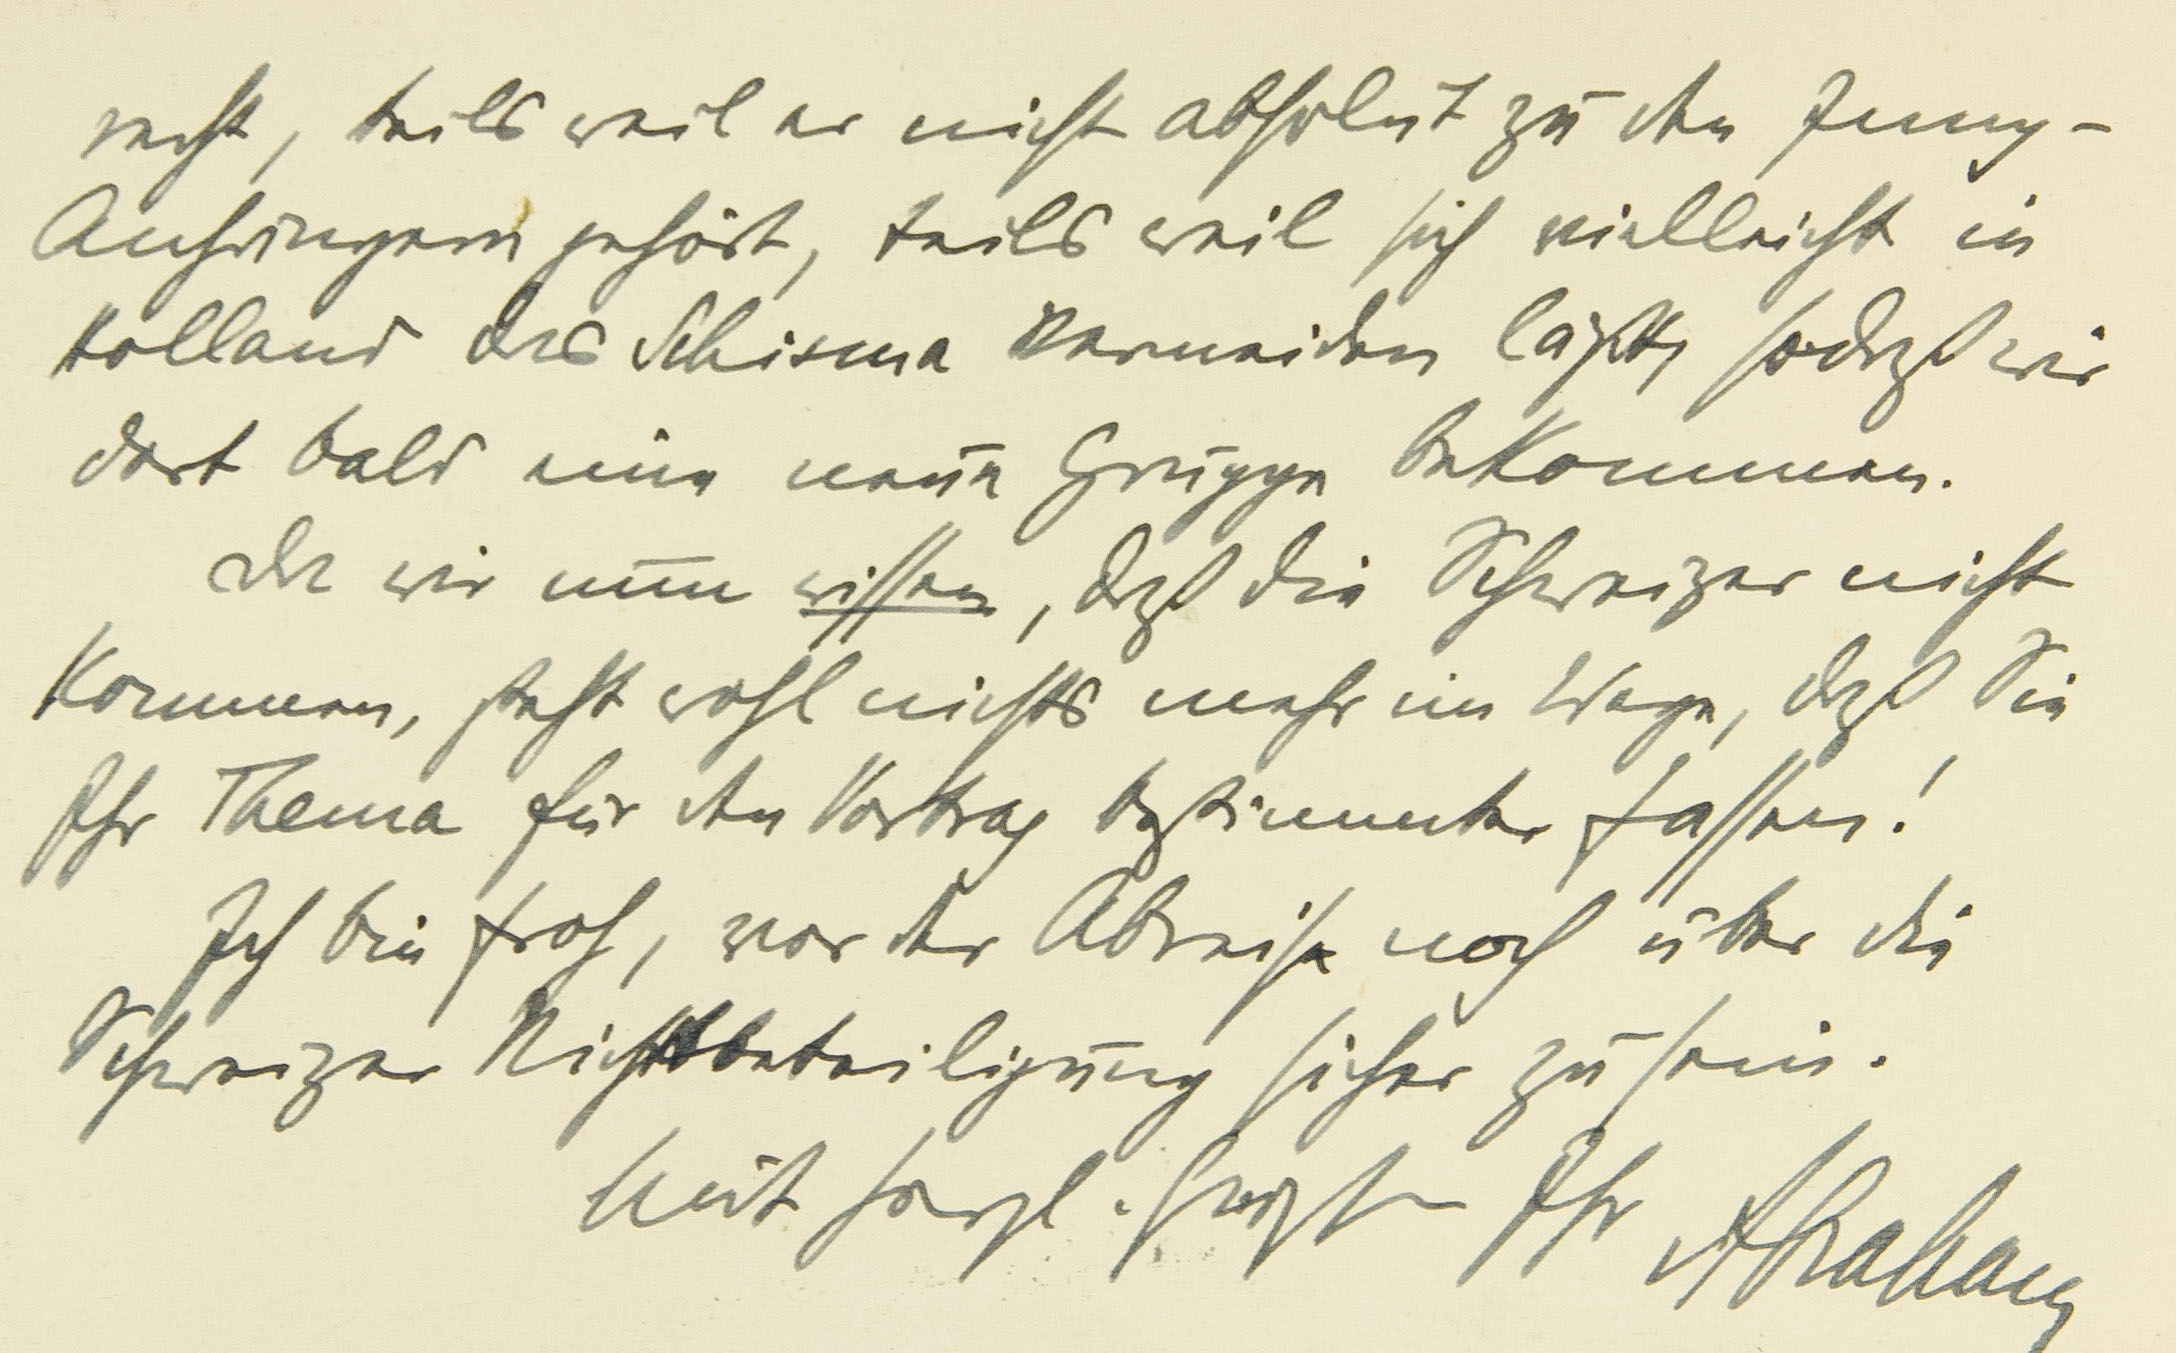 recht, teils weil er nicht absolut zu den Jung-
Anhängern gehört, teils weil sich vielleicht in
Holland das Schisma vermeiden läßt, sodaß wir
dort bald eine neue Gruppe bekommen.
Da wir nun wissen, daß die Schweizer nicht
kommen, steht wohl nichts mehr im Wege, daß Sie
Ihr Thema für den Vortrag bestimmter fassen!
Ich bin froh, vor der Abreise noch über die
Schweizer Nichtbeteiligung sicher zu sein.
Mit herzl. Grüßen Ihr Abraham